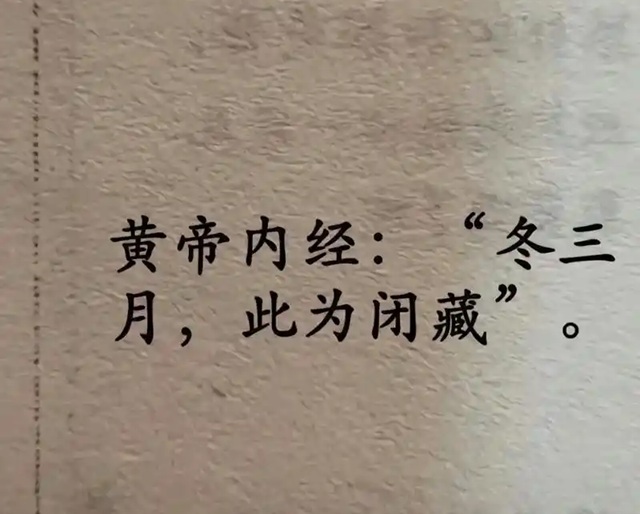 黄帝内经：“冬三
月，此为闭藏”。